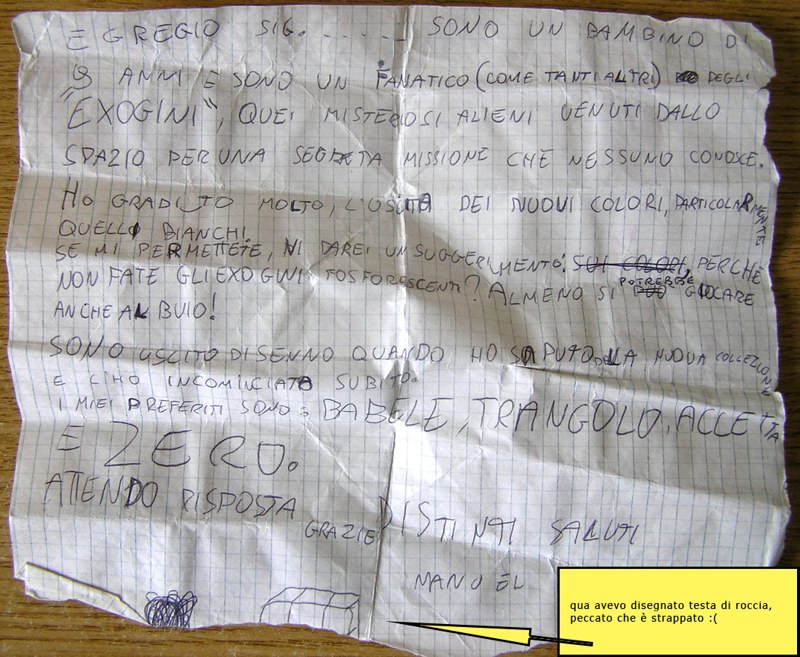 EGREGIO SIG. ..... SONO UN BAMBINO DI
9 ANNI E SONO UN FANATICO (COME TANTI ALTRI) DEGLI
"EXOGINI", QUEI MISTERIOSI ALIENI VENUTI DALLO
SPAZIO PER UNA SEGRETA MISSIONE CHE NESSUNO CONOSCE.
HO GRADITO MOLTO, L'USCITA DEI NUOVI COLORI, PARTICOLARMENTE
QUELLI BIANCHI.
SE MI PERMETTETE, VI DAREI UN SUGGERIMENTO! SUI COLORI, PERCHÈ
NON FATE GLI EXOGINI FOSFORESCENTI? ALMENO SI POTREBBE GIOCARE
ANCHE AL BUIO!
SONO USCITO DI SENNO QUANDO HO SAPUTO DELLA NUOVA COLLEZIONE
E L'HO INCOMINCIATA SUBITO.
I MIEI PREFERITI SONO: BABELE, TRANGOLO, ACCETTA
E ZERO.
ATTENDO RISPOSTA
GRAZIE DISTINTI SALUTI
MANOEL
qua avevo disegnato testa di roccia,
peccato che è strappato :(